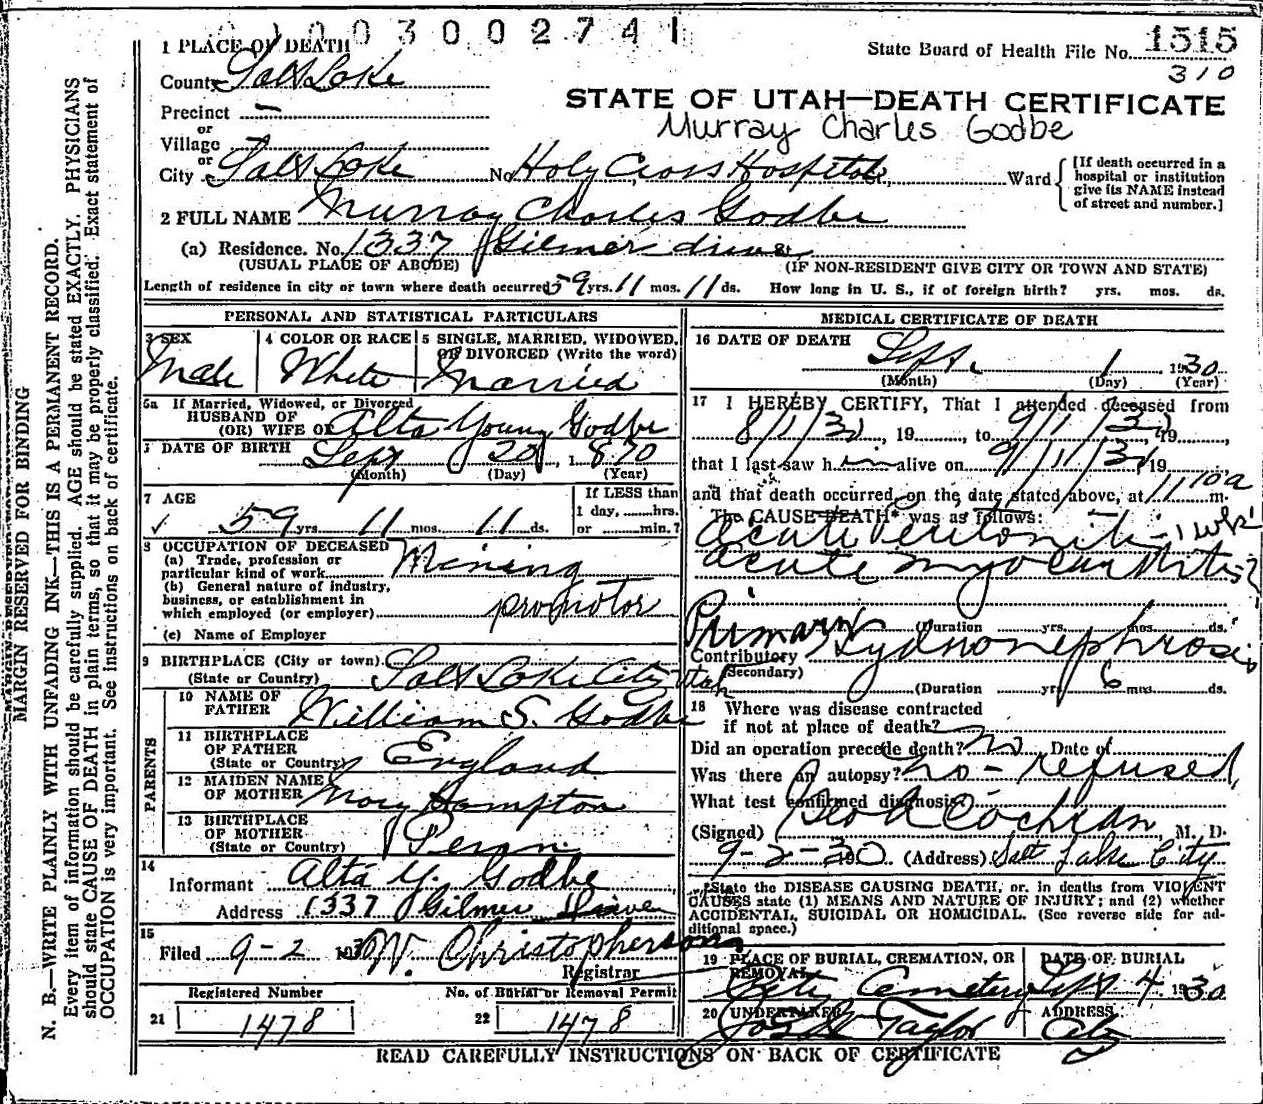 0 1 0 0 3 0 0 2 7 4 1
1 PLACE OF DEATH
State Board of Health File No. 1515
310
County Salt Lake
STATE OF UTAH—DEATH CERTIFICATE
Precinct —
Murray Charles Godbe
or
Village
or
City Salt Lake No Holy Cross Hospital Ward
[If death occurred in a hospital or institution give its NAME instead of street and number.]
2 FULL NAME Murray Charles Godbe
(a) Residence. No. 1337 Gilmer drive St.
(USUAL PLACE OF ABODE) (IF NON-RESIDENT GIVE CITY OR TOWN AND STATE)
Length of residence in city or town where death occurred 59 yrs. 11 mos. 11 ds. How long in U. S., if of foreign birth? yrs. mos. ds.
PERSONAL AND STATISTICAL PARTICULARS
3 SEX
Male
4 COLOR OR RACE
White
5 SINGLE, MARRIED, WIDOWED,
OR DIVORCED (Write the word)
Married
5a If Married, Widowed, or Divorced
HUSBAND OF
(OR) WIFE OF Alta Young Godbe
DATE OF BIRTH Sept 20, 1870
(Month) (Day) (Year)
7 AGE
✓ 59 yrs 11 mos. 11 ds.
If LESS than
1 day, ......hrs.
or ......min.?
8 OCCUPATION OF DECEASED
(a) Trade, profession or
particular kind of work Mining
(b) General nature of industry,
business, or establishment in
which employed (or employer) promotor
(c) Name of Employer
9 BIRTHPLACE (City or town) Salt Lake City Utah
(State or Country)
PARENTS
10 NAME OF
FATHER William S. Godbe
11 BIRTHPLACE
OF FATHER England
(State or Country)
12 MAIDEN NAME
OF MOTHER Mary Hampton
13 BIRTHPLACE
OF MOTHER
(State or Country)
14
Informant Alta Y. Godbe
Address 1337 Gilmer Drive
15
Filed 9-2 1930 W. Christopherson
Registrar
Registered Number
21 1478
No. of Burial or Removal Permit
22 1478
MEDICAL CERTIFICATE OF DEATH
16 DATE OF DEATH Sept. 1 1930
(Month) (Day) (Year)
17 I HEREBY CERTIFY, That I attended deceased from
8/1/30, 19......, to 9/1/30, 19......,
that I last saw him alive on 9/1/30, 19......
and that death occurred, on the date stated above, at 11 10 a m.
The CAUSE DEATH* was as follows:
Acute Peritonitis - 1 wk
Acute myocarditis?
Primary (Duration yrs. mos. ds.
Contributory Hydronephrosis
(Secondary)
(Duration yrs 6 mos. ds.
18 Where was disease contracted
if not at place of death?
Did an operation precede death? no Date of
Was there an autopsy? no - refused
What test confirmed diagnosis?
(Signed) Geo A Cochran, M. D.
9-2-30 (Address) Salt Lake City
*State the DISEASE CAUSING DEATH, or, in deaths from VIOLENT
CAUSES state (1) MEANS AND NATURE OF INJURY; and (2) whether
ACCIDENTAL, SUICIDAL OR HOMICIDAL. (See reverse side for ad-
ditional space.)
19 PLACE OF BURIAL, CREMATION, OR
REMOVAL
City Cemetery
DATE OF BURIAL
Sept 4 1930
20 UNDERTAKER
Taylor
ADDRESS
City
READ CAREFULLY INSTRUCTIONS ON BACK OF CERTIFICATE
MARGIN RESERVED FOR BINDING
N. B.—WRITE PLAINLY WITH UNFADING INK—THIS IS A PERMANENT RECORD.
Every item of information should be carefully supplied. AGE should be stated EXACTLY. PHYSICIANS
should state CAUSE OF DEATH in plain terms, so that it may be properly classified. Exact statement of
OCCUPATION is very important. See instructions on back of certificate.